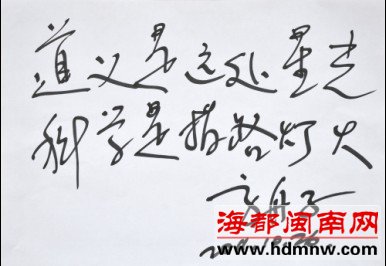 道义是远处星光
科学是指路灯火
方舟子
海都闽南网
www.hdmnw.com